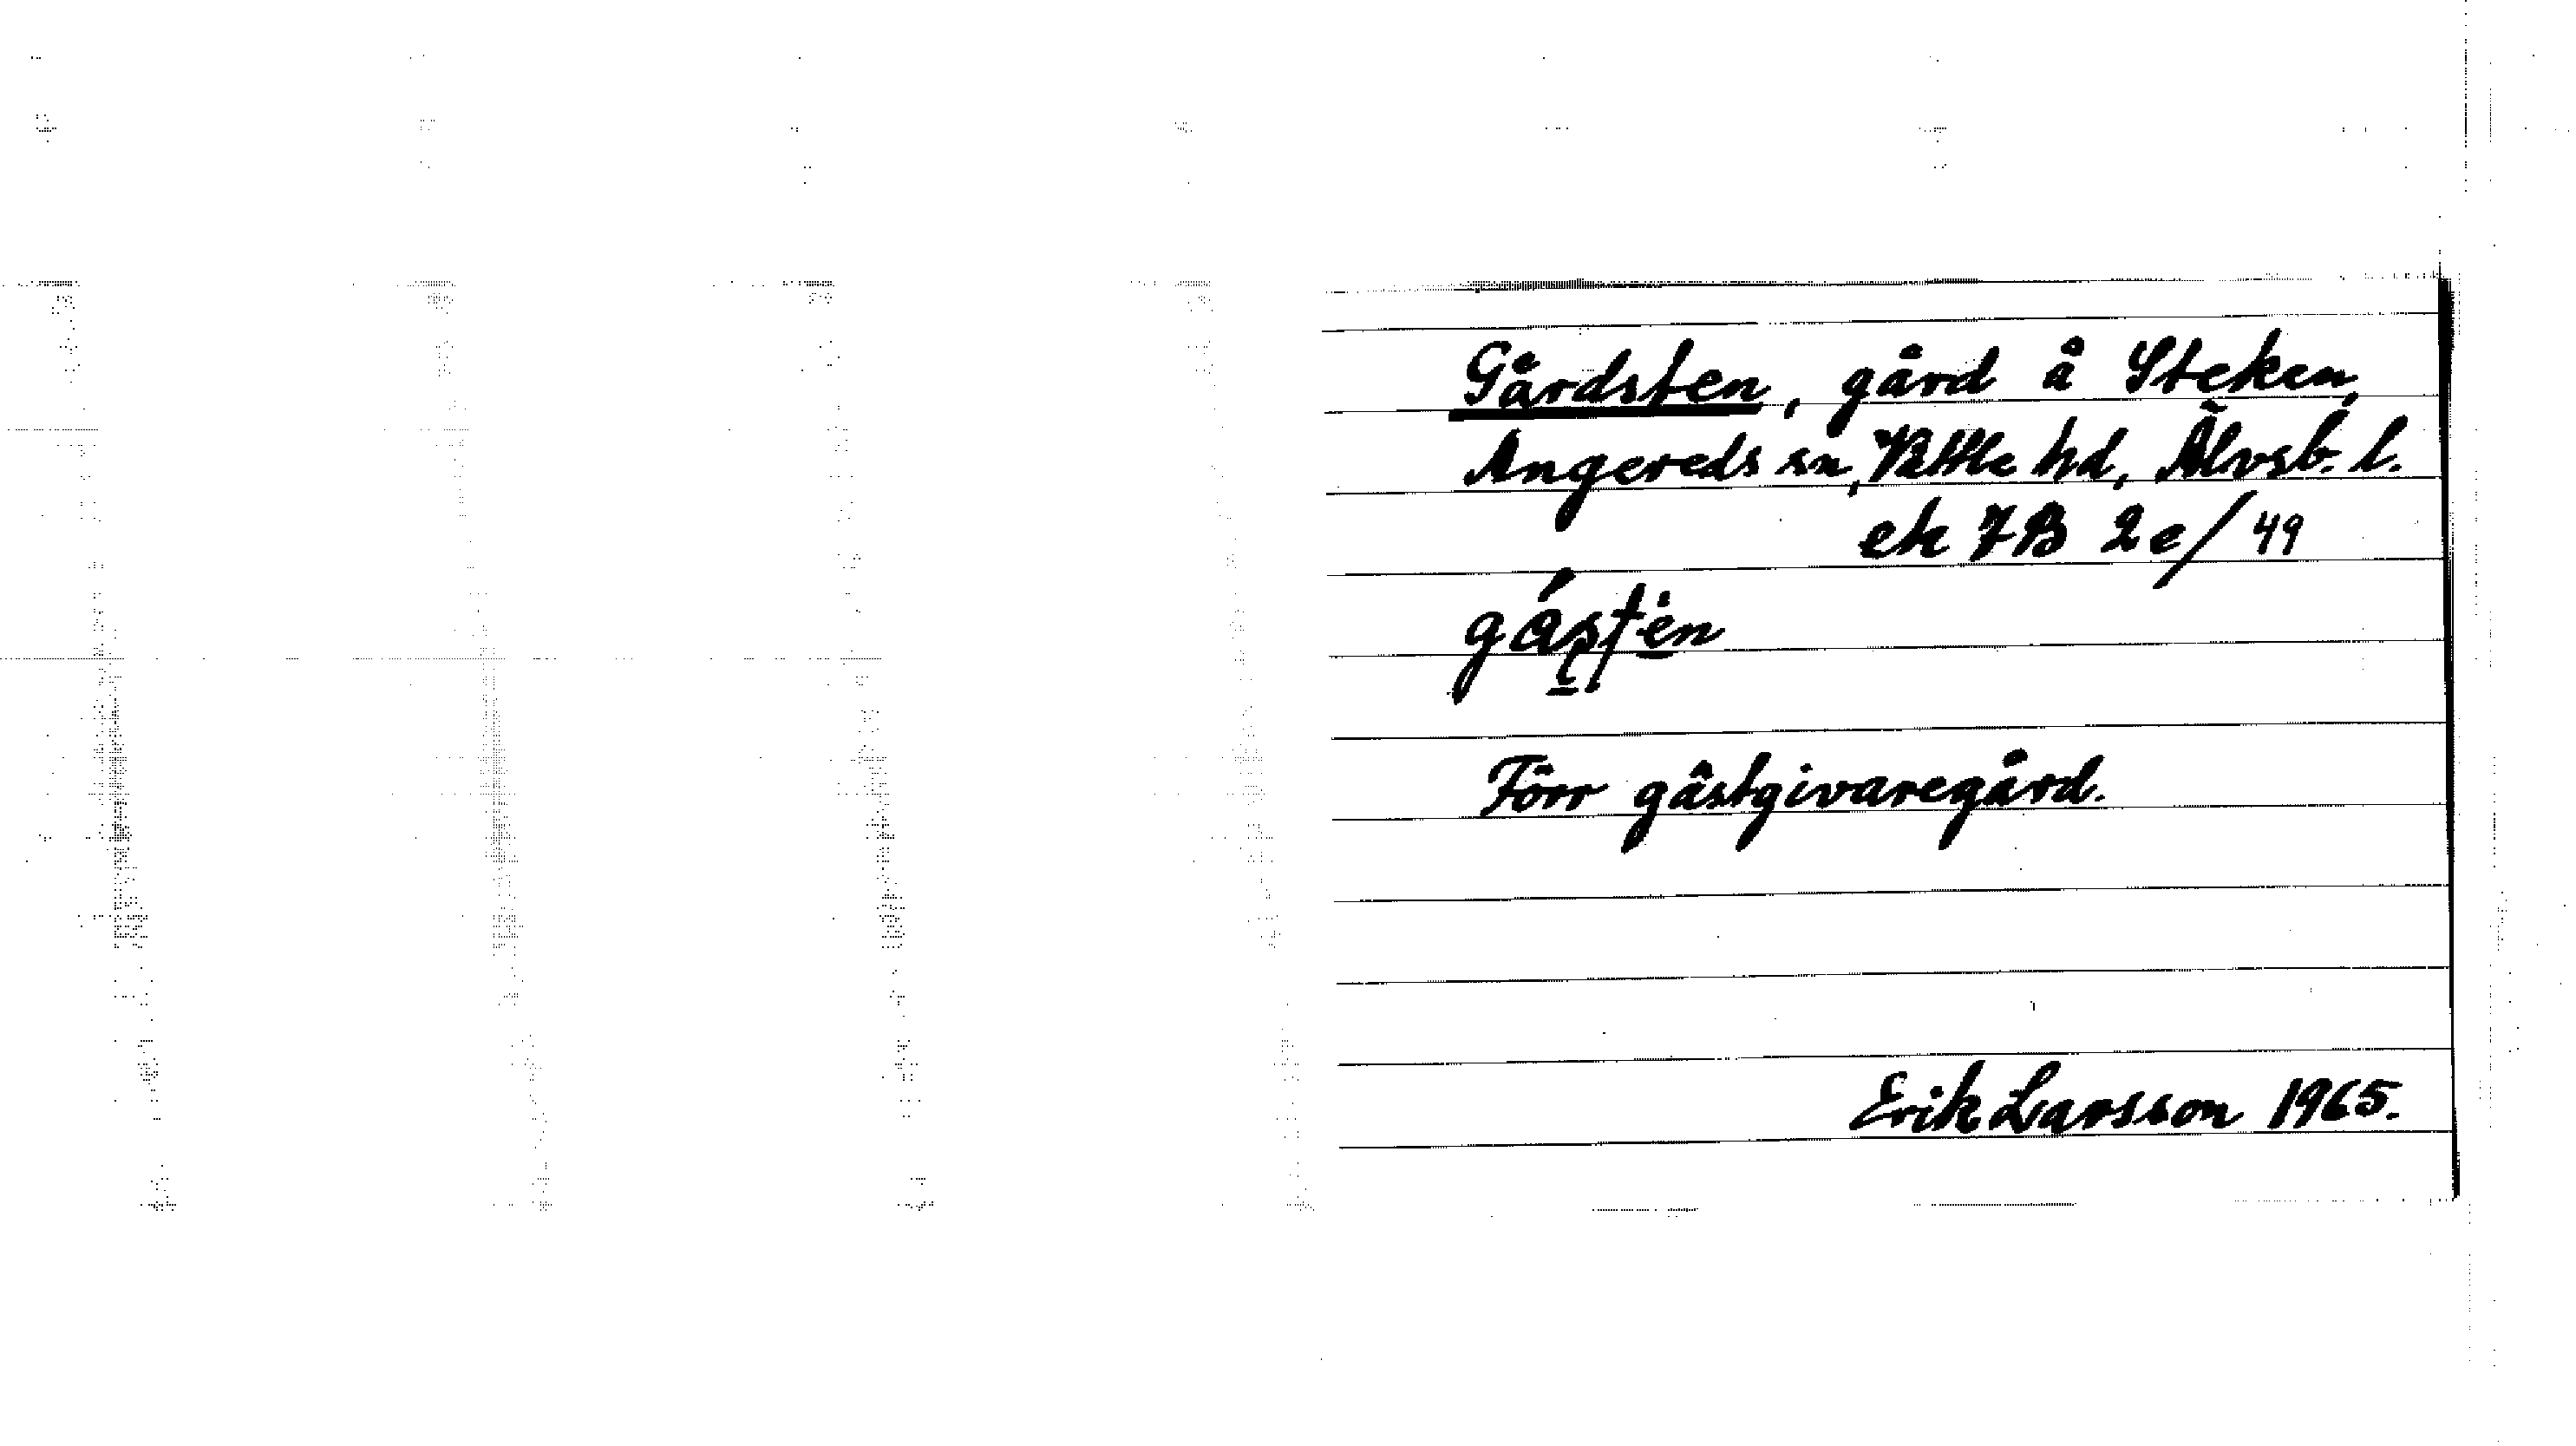 Gårdsten, gård å Steken,
Angereds sn, Vättle hd, Älvsb. l.
ek 7B 2e/49
Förr gästgivaregård.
Erik Larsson 1965.